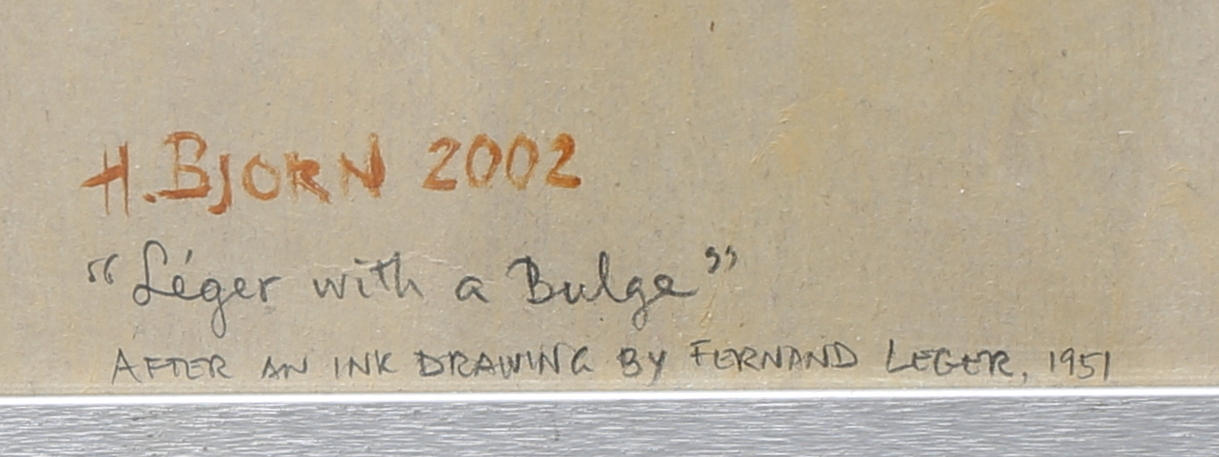 H. BJORN 2002
“Léger with a Bulge”
AFTER AN INK DRAWING BY FERNAND LEGER, 1951